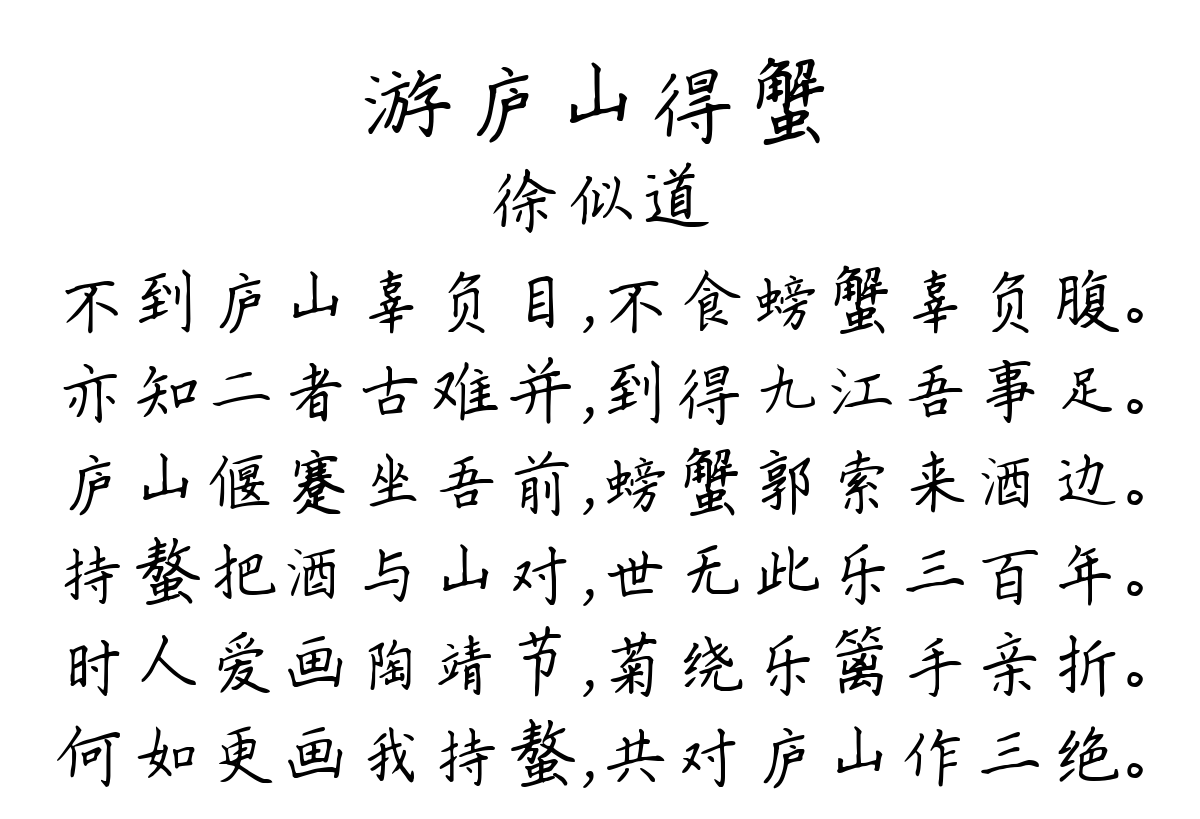 游庐山得蟹
徐似道
不到庐山辜负目,不食螃蟹辜负腹。
亦知二者古难并,到得九江吾事足。
庐山偃蹇坐吾前,螃蟹郭索来酒边。
持螯把酒与山对,世无此乐三百年。
时人爱画陶靖节,菊绕乐篱手亲折。
何如更画我持螯,共对庐山作三绝。